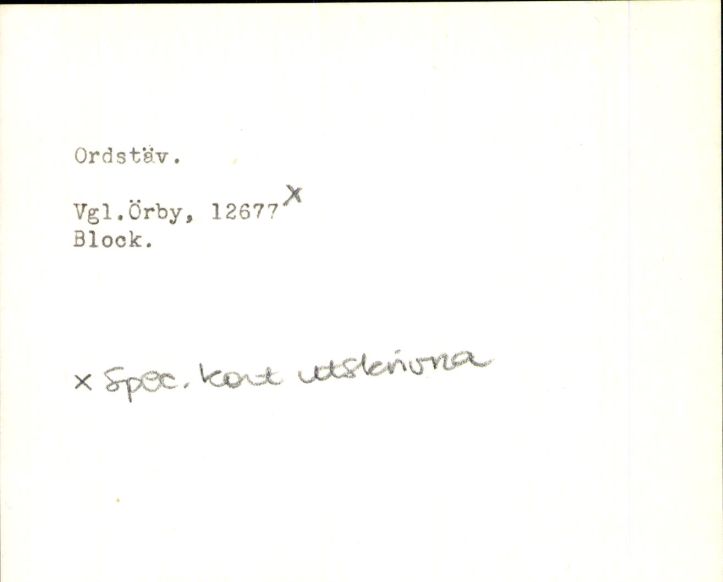 Ordstäv.
Vgl.Örby, 12677 x
Block.
x Spec. kort utskrivna